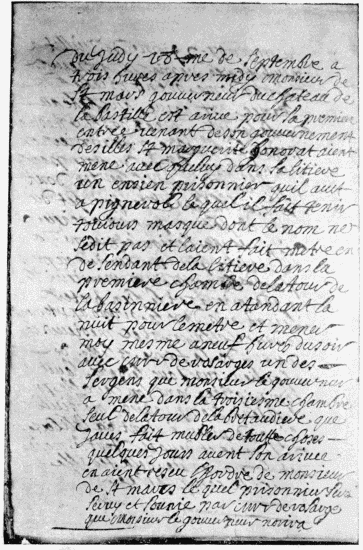 du judy 18me de septembre a
trois hures apres midy monsieur de
St mars gouverneur du chateau de
la bastille est arive pour sa premiere
entrée venant de son gouvernement
des illes Ste marguerite honorat aient
mene avec luy dans sa litiere
un ensien prisonnier quil avet
a pignerol lequel il fait tenir
toujours masque dont le nom ne
se dit pas et laient fait metre en
de sendant de la litiere dans la
premiere chambre de la tour de
la basinniere en atendant la
nuit pour le metre et mener
moy mesme a neuf hures du soir
avec mr de rosarges un des
sergens que monsieur le gouverneur
a mene dans la troisiesme chambre
seul de la tour de la bretaudiere que
javes fait mubler de toutte choses
quelques jours avent son arivee
en aient reseu lhordre de monsieur
de St mars lequel prisonnier sera
servy et sounie par mr de rosarge
que monsieur le gouverneur norira